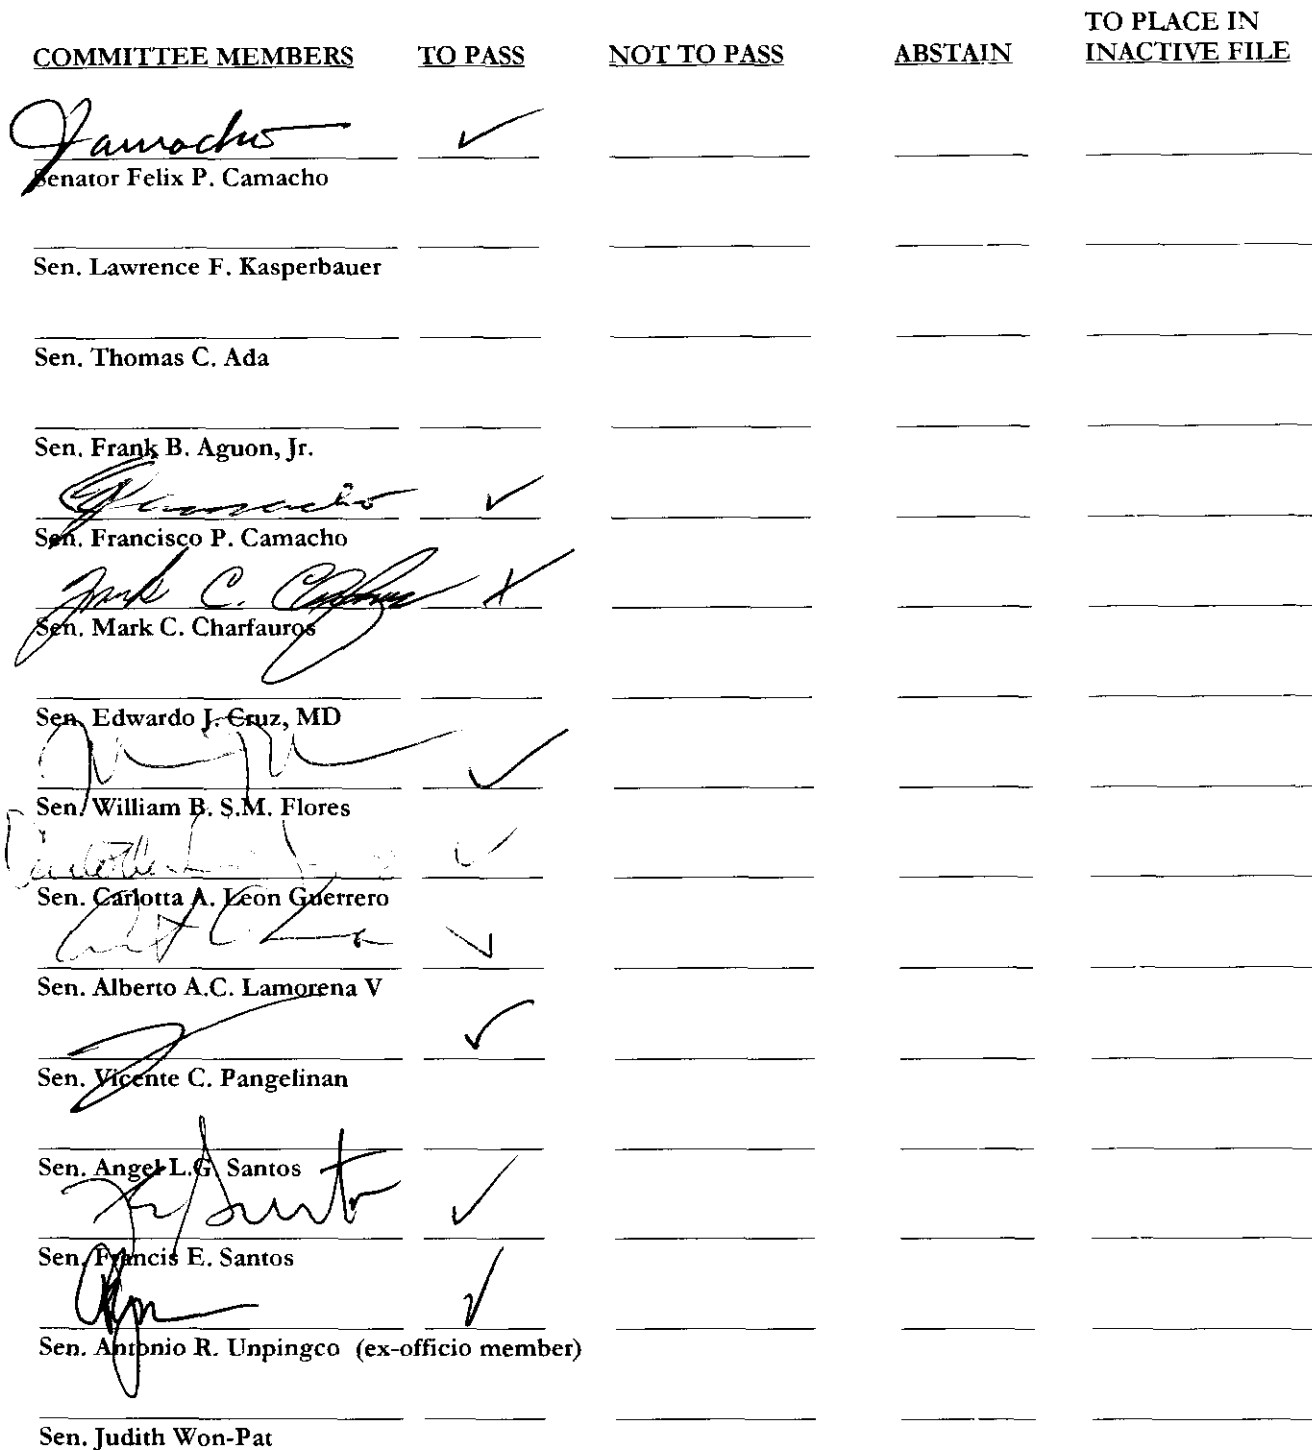 COMMITTEE MEMBERS TO PASS NOT TO PASS ABSTAIN TO PLACE IN INACTIVE FILE
Camacho ✓
Senator Felix P. Camacho
Sen. Lawrence F. Kasperbauer
Sen. Thomas C. Ada
Sen. Frank B. Aguon, Jr.
Camacho ✓
Sen. Francisco P. Camacho
Mark C. Charfauros X
Sen. Mark C. Charfauros
Sen. Edwardo J. Cruz, MD
✓
Sen. William B. S.M. Flores
✓
Sen. Carlotta A. Leon Guerrero
✓
Sen. Alberto A.C. Lamorena V
✓
Sen. Vicente C. Pangelinan
Sen. Angel L.G. Santos
Santos ✓
Sen. Francis E. Santos
✓
Sen. Antonio R. Unpingco (ex-officio member)
Sen. Judith Won-Pat